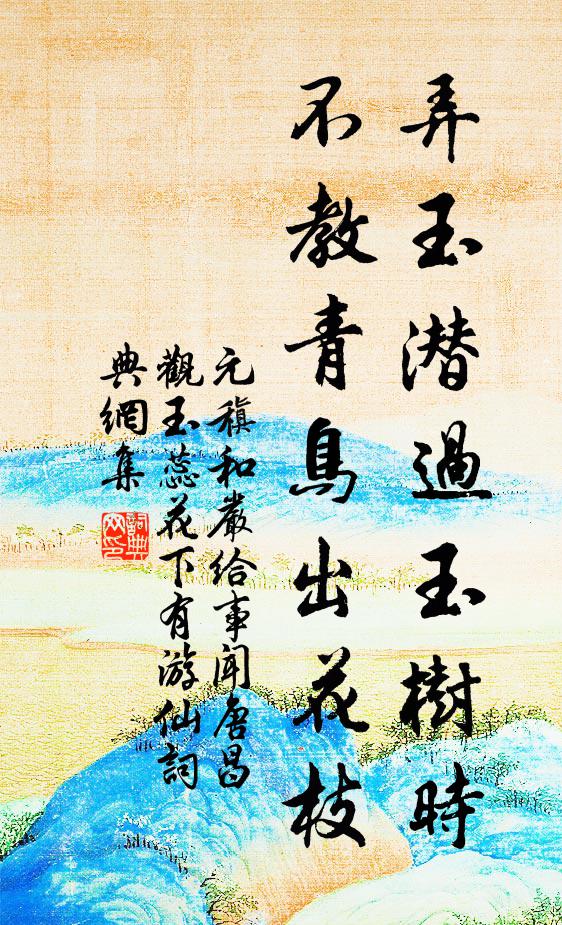 弄玉潜過玉樹時
不教青鳥出花枝
元稹和嚴給事聞唐昌
觀玉蕊花下有游仙詞
典網集
詞典網印